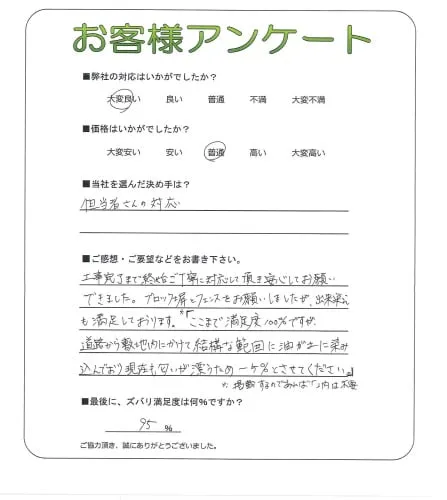 お客様アンケート
■弊社の対応はいかがでしたか?
大変良い 良い 普通 不満 大変不満
■価格はいかがでしたか?
大変安い 安い 普通 高い 大変高い
■当社を選んだ決め手は?
担当者さんの対応
■ご感想・ご要望などをお書き下さい。
工事完了まで終始ご丁寧に対応して頂き安心してお願い
できました。ブロック塀とフェンスをお願いしましたが、出来栄え
も満足しております。※「ここまで満足度100%ですが、
道路から敷地内にかけて結構な範囲に油がまに染み
込んでおり現在も匂いが漂うため-5%とさせてください。」
※掲載するのであれば「」内は不要
■最後に、ズバリ満足度は何%ですか?
95 %
ご協力頂き、誠にありがとうございました。